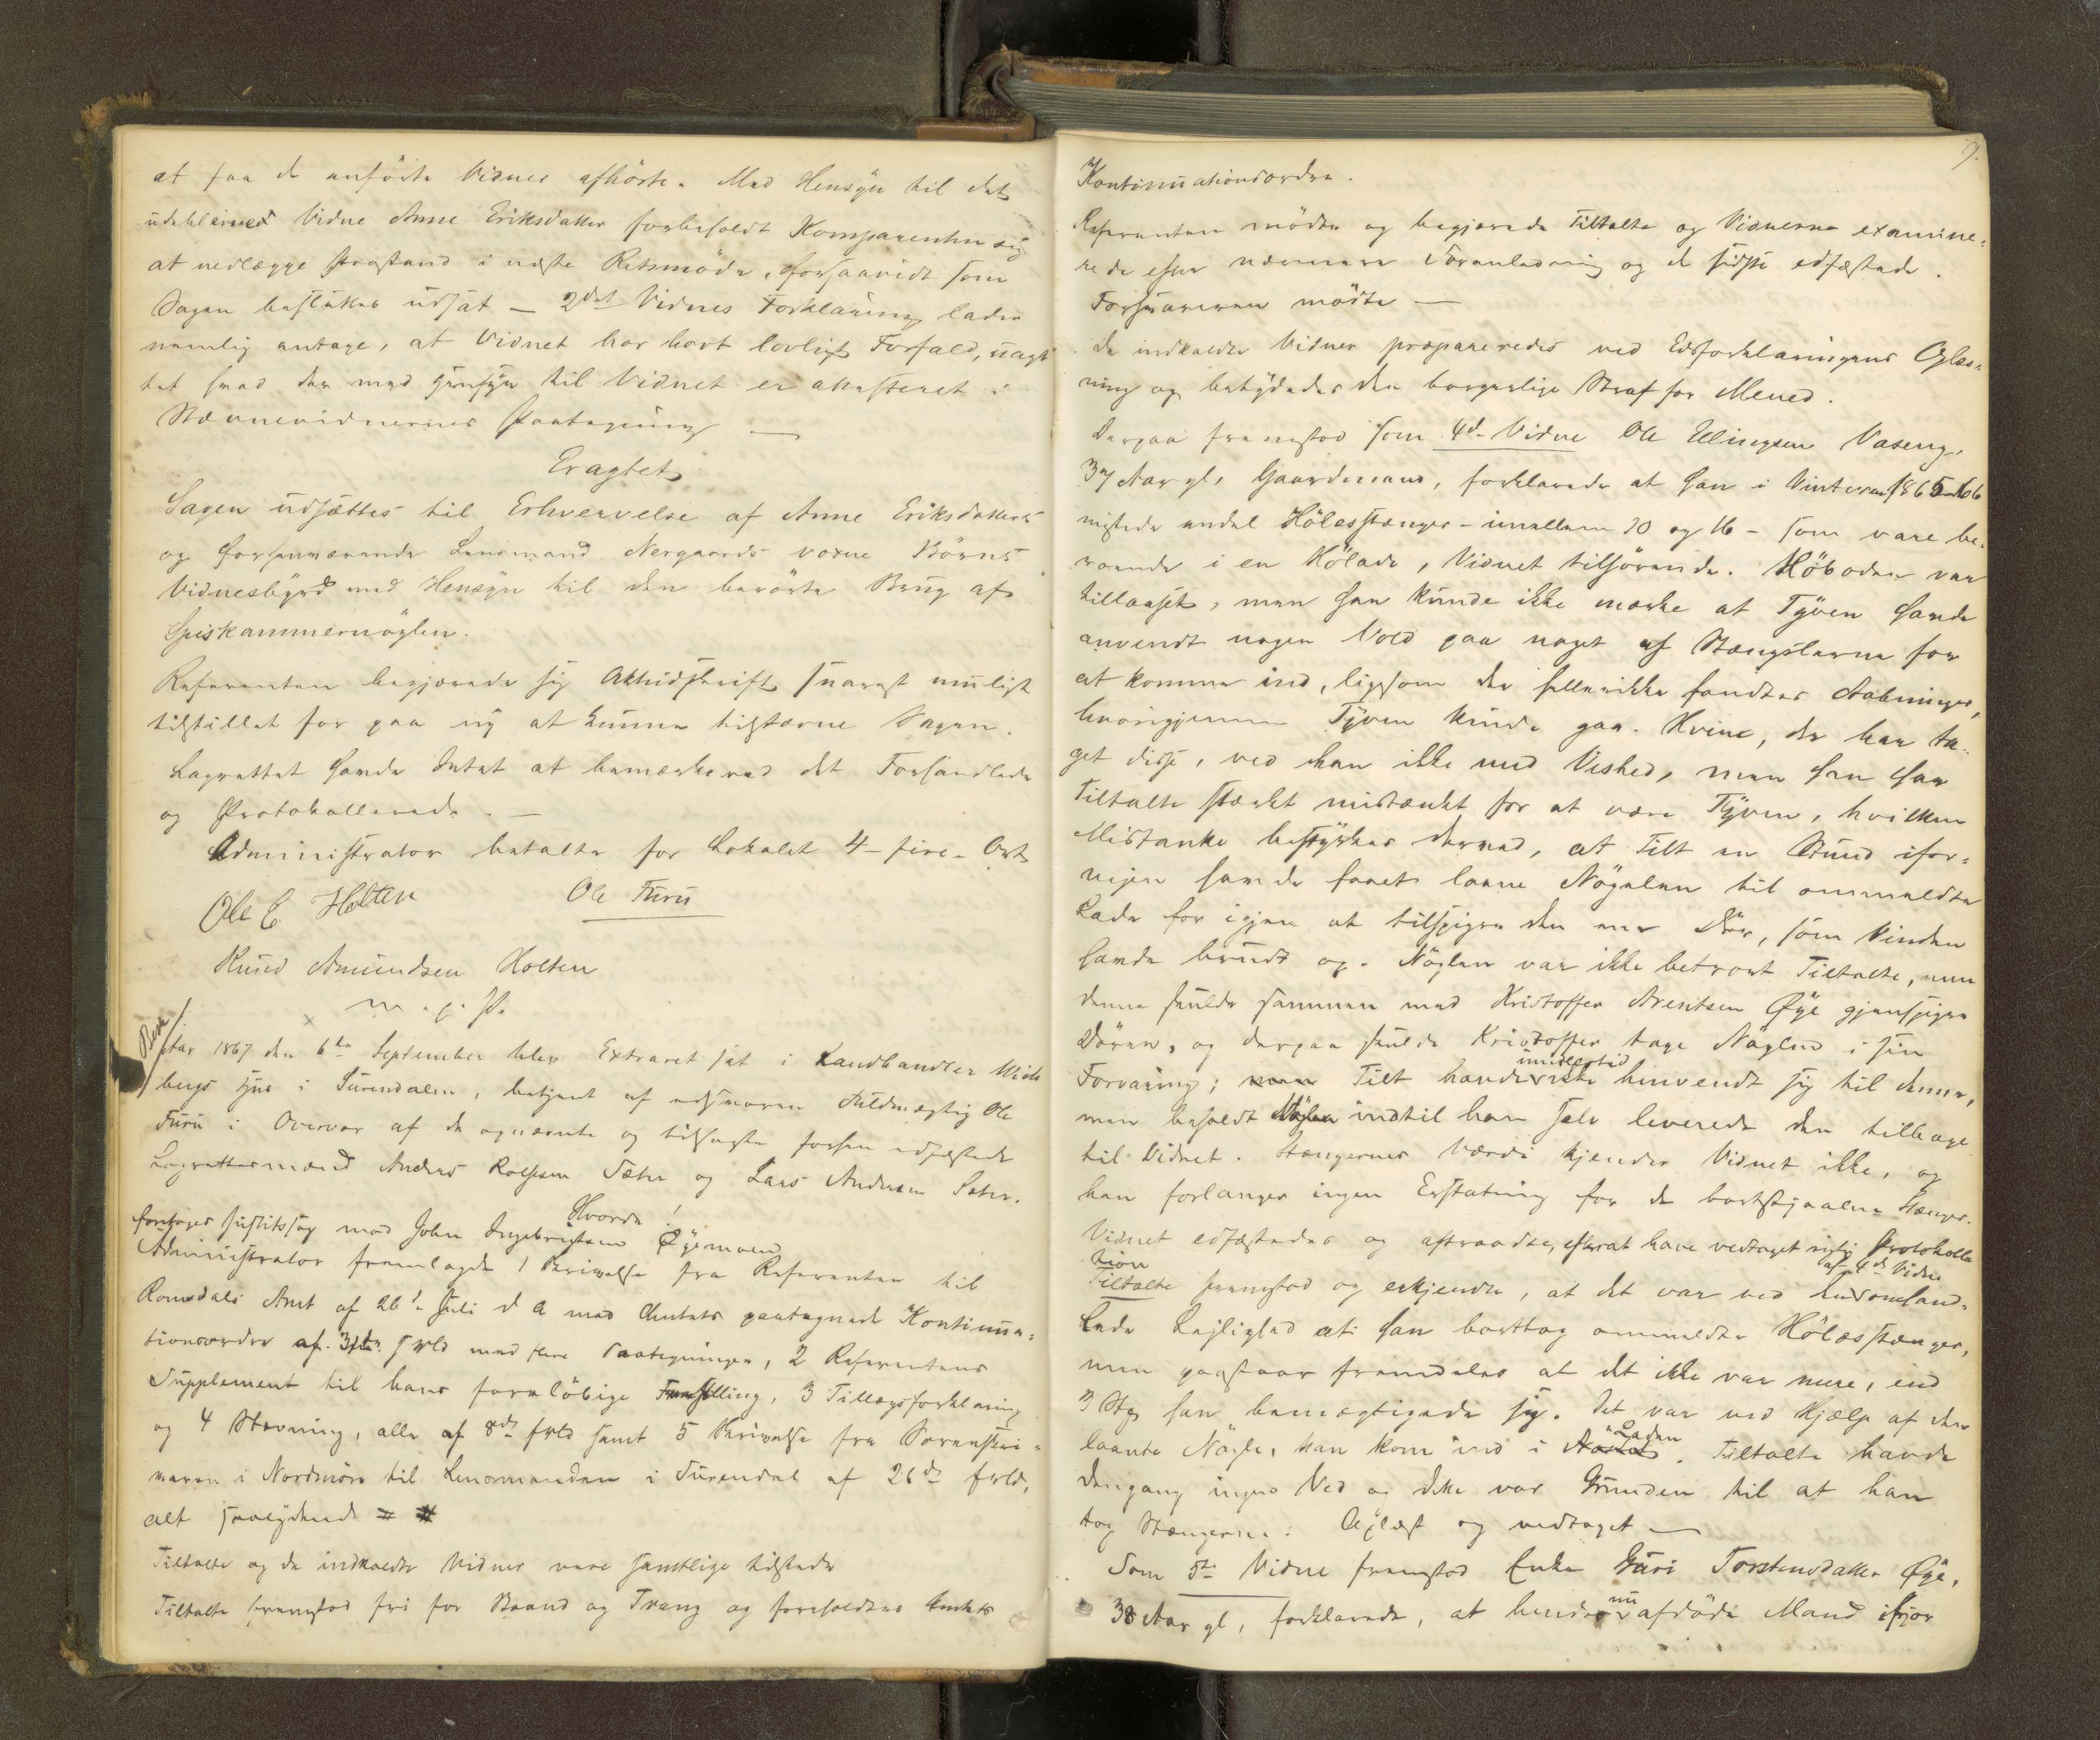 at faa de anførte Vidner afhørte. Med Hensyn til det
udeblevned Vidne Anne Eriksdatter forbeholdt Komparenten sig
at nedlægge Paastand i næste Retsmøde, forsaavidt som
Sagen besluttes udsat — 2det Vidnes Forklaring lader
nemlig antage, at Vidnet har havt lovligt Forfald, uagt
tet hvad der med Hensyn til Vidnet er attesteret i
Stævnevidnernes Paategning —
Eragtet
Sagen udsættes til Erhvervelse af Anne Eriksdatters
og forhenværende Lensmand Nergaards voxne Børns
Vidnesbyrd med Hensyn til den berørte Brug af
Spiskammernøglen.
Referenten begjærede sig Aktudskrift snarest muligt
tilstillet for paa ny at kunne tilstævne Sagen.
Lagrettet havde Intet at bemærke ved det Forhandlede
og Protokollerede. —
Administrator betalte for Lokalet 4 - fire - Ort
Ole E Holten Ole Furu
Knud Amundsen Holten
m. p. P.
Aar 1867 den 6te September blev Extraret sat i Landhandler
bergs Hus i Surendalen, betjent af edsvoren Fuldmægtig Ole
Furu i Overvær af de opnævnte og tilsagte forhen edfæstede
Lagrettesmænd Anders Rolfsen Sæter og Lars Andersen Sæter.
Hvorda!
foretoges Justitssag mod John Ingebrigtsen Øyemoen
Administrator fremlagde 1 Skrivelse fra Referenten til
Romsdals Amt af 26de Juli d A med Amtets paategnede Kontinua-
tionsordre af 31te f Md med flere Paategninger, 2 Referentens
Supplement til hans foreløbige Fremstilling, 3 Tillægsforklaring
og 4 Stævning, alle af 8de f Md samt 5 Skrivelse fra Sorenskri-
veren i Nordmøre til Lensmanden i Surendal af 26de f Md,
alt saalydende = #
Tiltalte og de indkaldte Vidner vare samtlige tilstede
Tiltalte fremstod fri for Baand og Tvang og foreholdtes Amtets
9.
Kontinuationsordre.
Referenten mødte og begjærede Tiltalte og Vidnerne examine-
rede efter nærmere Foranledning og de sidste edfæstede.
Forsvareren mødte —
De indkaldte Vidner præpareredes ved Edsforklaringens Oplæs-
ning og betydedes den borgerlige Straf for Mened.
Derpaa fremstod som 4de Vidne Ole Ellingsen Vaseng,
37 Aar gl, Gaardmand, forklarede at han i Vinteren 1865-66
mistede endel Hølæsstænger - imellem 10 og 16 - som vare be-
roende i en Hølade, Vidnet tilhørende. Høboden var
tillaaset, men han kunde ikke mærke at Tyven havde
anvendt nogen Vold paa noget af Stængslerne for
at komme ind, ligesom der hellerikke fandtes Aabninger,
hvorigjennem Tyven kunde gaa. Hvem, der har ta-
get disse, ved han ikke med Vished, men han har
Tiltalte stærkt mistænkt for at være Tyven, hvilken
Mistanke bestyrkes derved, at Tilt en Stund ifor-
vejen havde faaet laane Nøgelen til ommeldte
Lade for igjen at tilspigre den ene Dør, som Vinden
havde brudt op. Nøglen var ikke betroet Tiltalte, men
denne skulde sammen med Kristoffer Arentsen Øye gjenspigre
Døren, og derpaa skulde Kristoffer tage Nøglen i sin
Forvaring; Tilt havde imidlertid ikke henvendt sig til denne,
men beholdt Nøglen indtil han selv leverede den tilbage
til Vidnet. Stængernes Værdi kjender Vidnet ikke, og
han forlanger ingen Erstatning for de bortstjaalne Stænger.
Vidnet edfæstedes og aftraadte, efterat have vedtaget rigtig Protokolla
tion
Tiltalte fremstod og erkjendte, at det var ved den af 4de Vidne omhand-
lede Lejlighed at han borttog ommeldte Hølæsstænger,
men paastaar fremdeles at det ikke var mere, end
3 Stk han bemægtigede sig. Det var ved Hjælp af den
laante Nøgle, han kom ind i Laden. Tiltalte havde
dengang ingen Ved og dette var Grunden til at han
tog Stængerne. Oplæst og vedtaget —
Som 5te Vidne fremstod Enke Guri Torstensdatter Øye,
38 Aar gl, forklarede, at hendes nu afdøde Mand ifjor